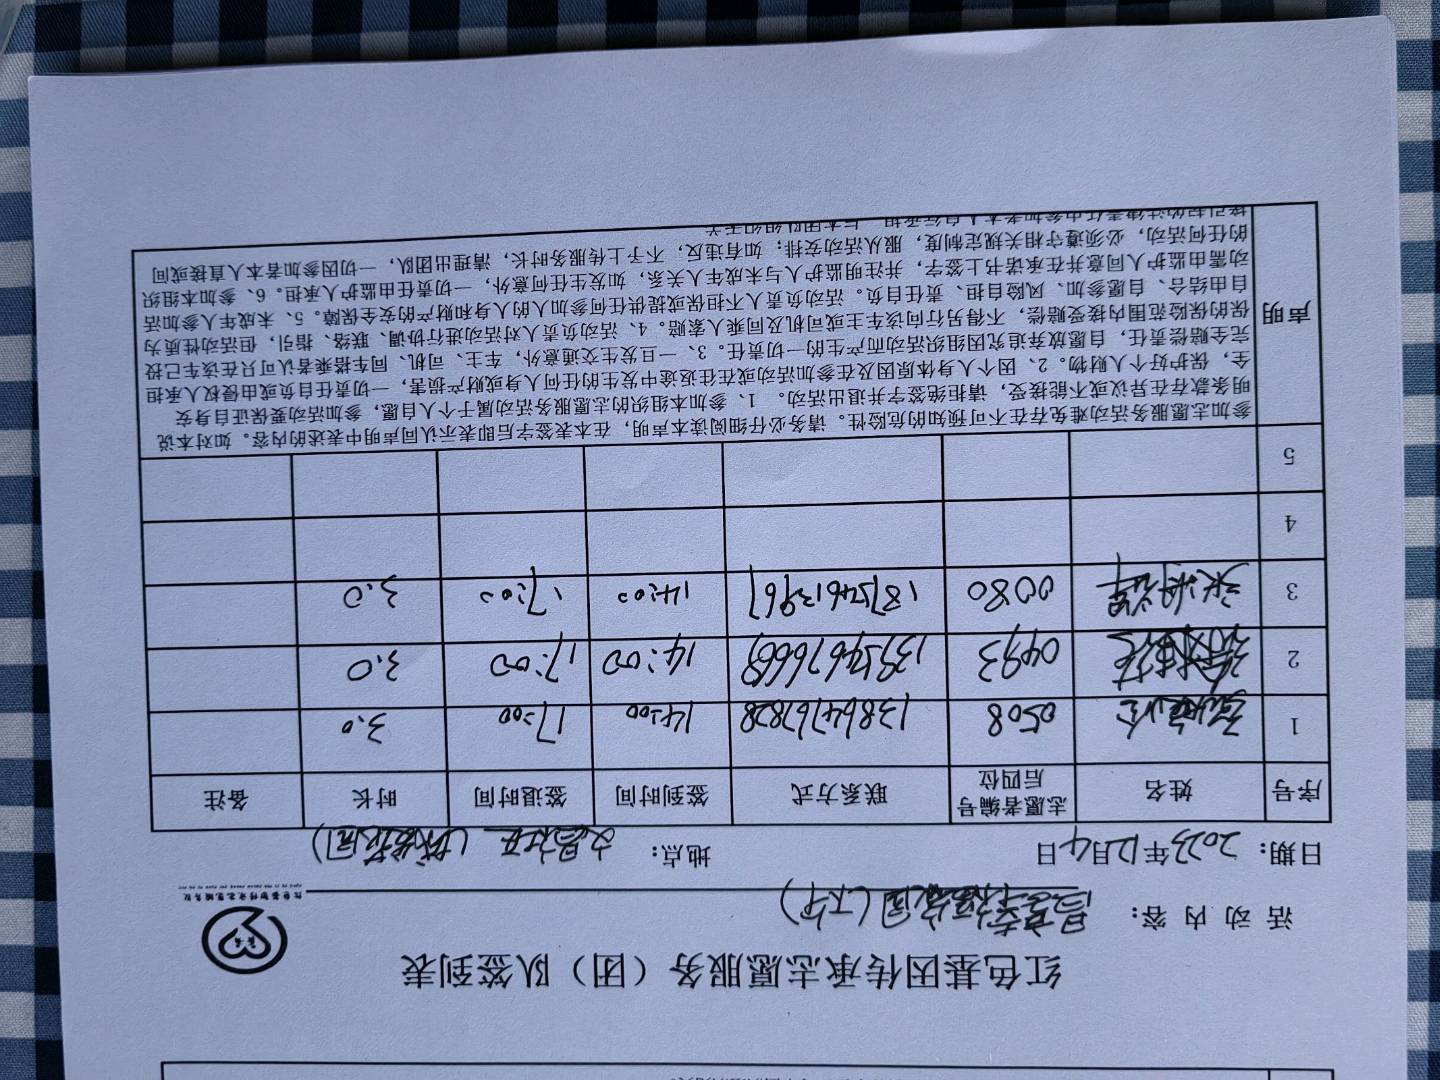 红色基因传承志愿服务（团）队签到表
活动内容：
日期：2023年12月4日 地点：
序号 姓名 志愿者编号后四位 联系方式 签到时间 签退时间 时长 备注
1 0508 13864767828 14:00 17:00 3.0
2 0493 14:00 17:00 3.0
3 0080 18754613967 14:00 17:00 3.0
4
5
声明
参加志愿服务活动难免存在不可预知的危险性。请务必仔细阅读本声明，在本表签字后即表示认同声明中表述的内容。如对本说
明条款存在异议或不能接受，请拒绝签字并退出活动。 1、参加本组织的志愿服务活动属于个人自愿，参加活动要保证自身安
全，保护好个人财物。2、因个人身体原因及在参加活动或在往返途中发生的任何人身或财产损害，一切责任自负或由侵权人承担
完全赔偿责任，自愿放弃追究因组织活动而产生的一切责任。3、一旦发生交通意外，车主、司机、同车搭乘者认可只在该车已投
保的保险范围内接受赔偿，不得另行向该车主或司机及同乘人索赔。4、活动负责人对活动进行协调、联络、指引，但活动性质为
自由结合、自愿参加、风险自担、责任自负。活动负责人不担保或提供任何参加人的人身和财产的安全保障。5、未成年人参加活
动需由监护人同意并在承诺书上签字，并注明监护人与未成年人关系，如发生任何意外，一切责任由监护人承担。6、参加本组织
的任何活动，必须遵守相关规定制度，服从活动安排；如有违反，不予上传服务时长，清理出团队，一切因参加者本人直接或间
接引起的法律责任由参加者本人自行承担，与本团队组织无关